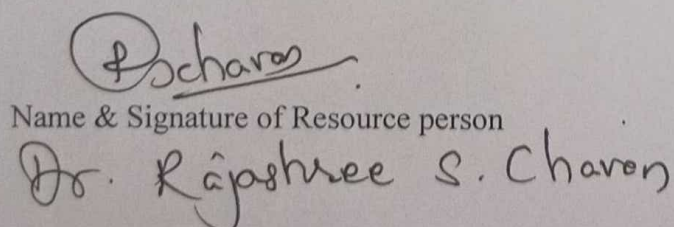 RSchavan
Name & Signature of Resource person
Dr. Rajashree S. Chavan